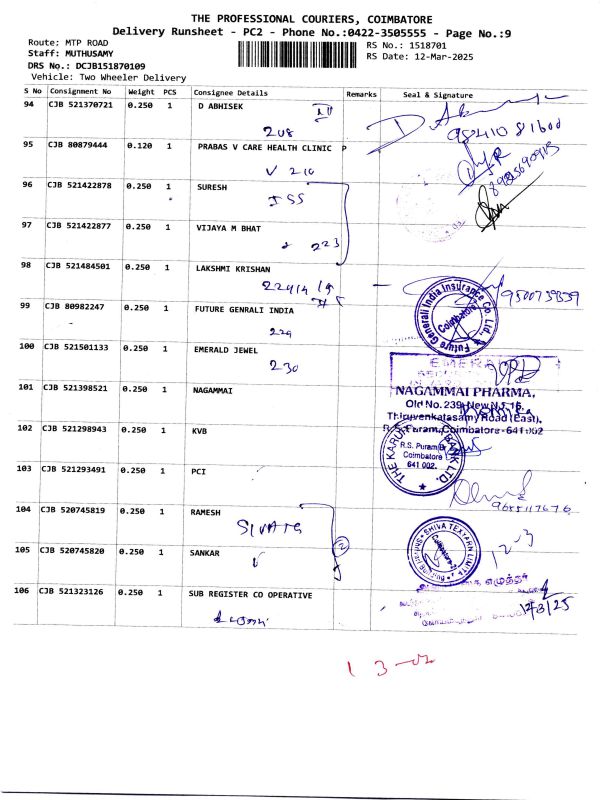 THE PROFESSIONAL COURIERS, COIMBATORE
Delivery Runsheet - PC2 - Phone No.:0422-3505555 - Page No.:9
Route: MTP ROAD
Staff: MUTHUSAMY
DRS No.: DCJB151870109
Vehicle: Two Wheeler Delivery
RS No.: 1518701
RS Date: 12-Mar-2025
S No Consignment No Weight PCS Consignee Details Remarks Seal & Signature
94 CJB 521370721 0.250 1 D ABHISEK
208
9841081600
95 CJB 80879444 0.120 1 PRABAS V CARE HEALTH CLINIC P
V 210
96 CJB 521422878 0.250 1 SURESH
ISS
97 CJB 521422877 0.250 1 VIJAYA M BHAT
223
98 CJB 521484501 0.250 1 LAKSHMI KRISHAN
9500739839
99 CJB 80982247 0.250 1 FUTURE GENRALI INDIA
229
Future Generali India Insurance Co. Ltd.,
Coimbatore
100 CJB 521501133 0.250 1 EMERALD JEWEL
230
EMERALD
101 CJB 521398521 0.250 1 NAGAMMAI
NAGAMMAI PHARMA,
Old No. 239, New No. 15,
Thiruvenkatasamy Road (East),
R.S. Puram, Coimbatore - 641 002
102 CJB 521298943 0.250 1 KVB
THE KARUR VYSYA BANK LTD.
R.S. Puram Br
Coimbatore
641 002.
103 CJB 521293491 0.250 1 PCI
104 CJB 520745819 0.250 1 RAMESH
SIVATS
105 CJB 520745820 0.250 1 SANKAR
2
SHIVA TEXYARN LIMITED
Coimbatore-2
12-3
106 CJB 521323126 0.250 1 SUB REGISTER CO OPERATIVE
12/3/25
1 3-02